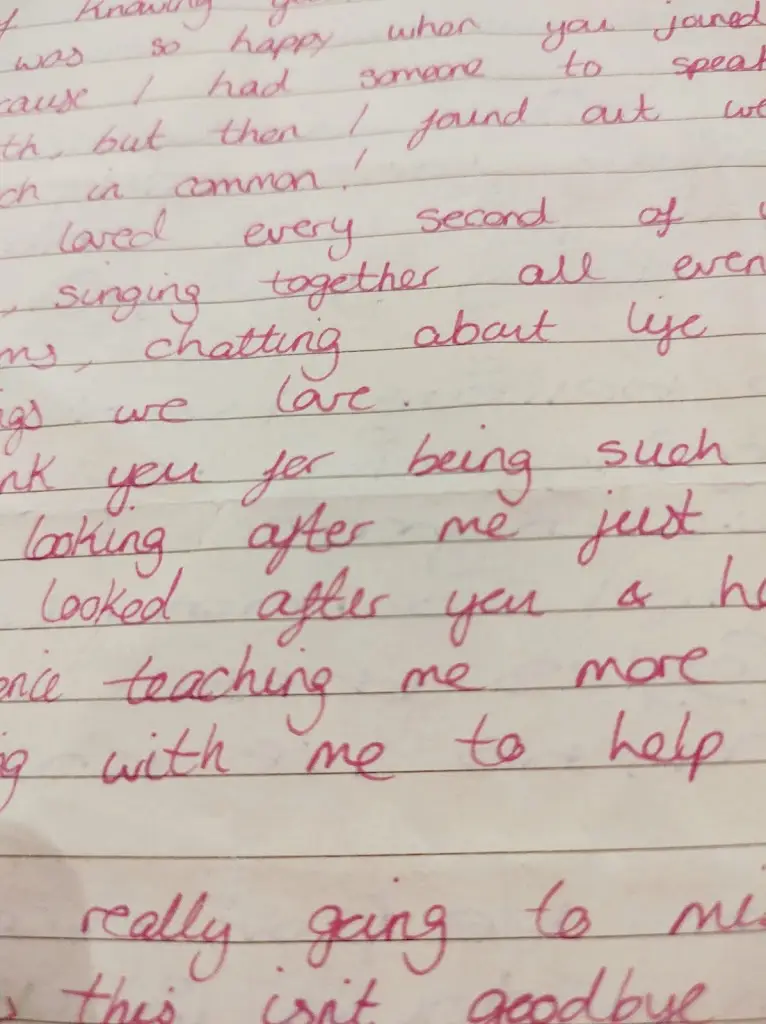 knowing
was so happy when you joined
cause I had someone to speak
th, but then I found out we
ch in common!
loved every second of
, singing together all even
ms, chatting about life
gs we love.
nk you for being such
looking after me just
looked after you & ha
ence teaching me more
g with me to help
really going to mi
this isn't goodbye